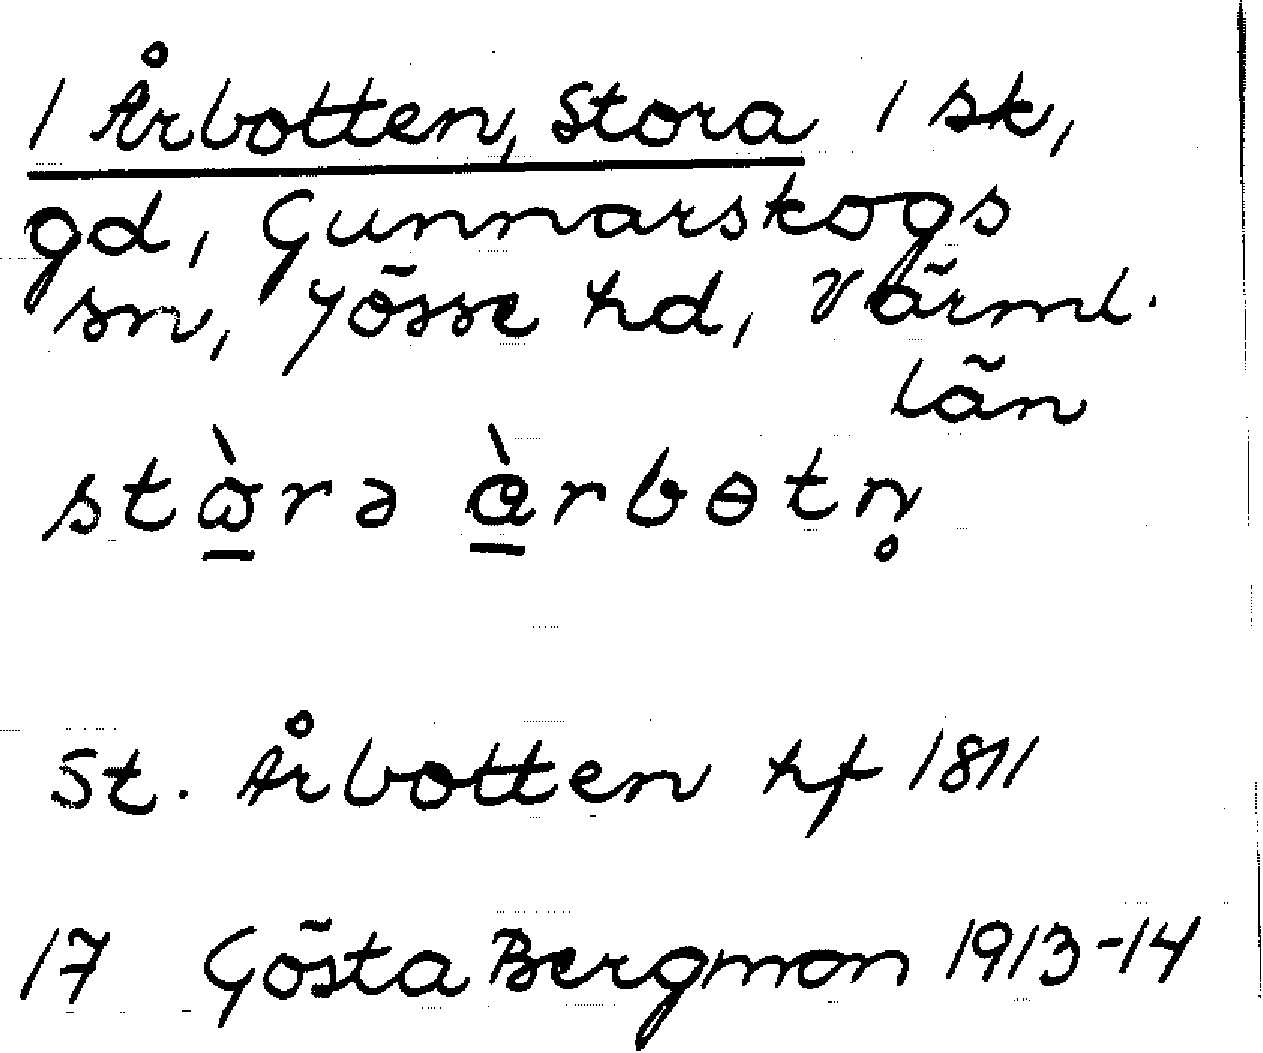 1 Årbotten, Stora 1 sk,
gd, Gunnarskogs
sn, Jösse hd, Värml.
län
stὼrə àrbɵtn̥
St. Årbotten hf 1811
17 Gösta Bergman 1913-14